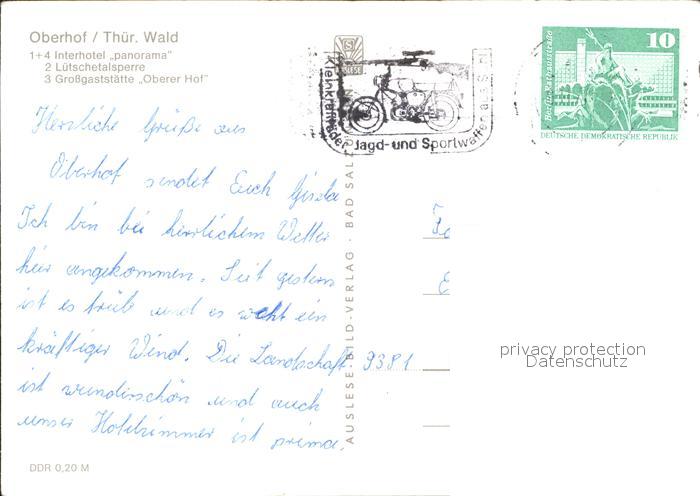 Oberhof / Thür. Wald
1+4 Interhotel „panorama“
2 Lütschetalsperre
3 Großgaststätte „Oberer Hof“
Kleinkrafträder Jagd- und Sportwaffen aus S
10
Berlin-Rathausstraße
DEUTSCHE DEMOKRATISCHE REPUBLIK
Herzliche Grüße aus
Oberhof sendet Euch Gisela
Ich bin bei herrlichem Wetter
hier angekommen. Seit gestern
ist es trüb und es weht ein
kräftiger Wind. Die Landschaft
ist wunderschön und auch
unser Hotelzimmer ist prima.
AUSLESE-BILD-VERLAG · BAD SALZ
9381
privacy protection
Datenschutz
DDR 0,20 M